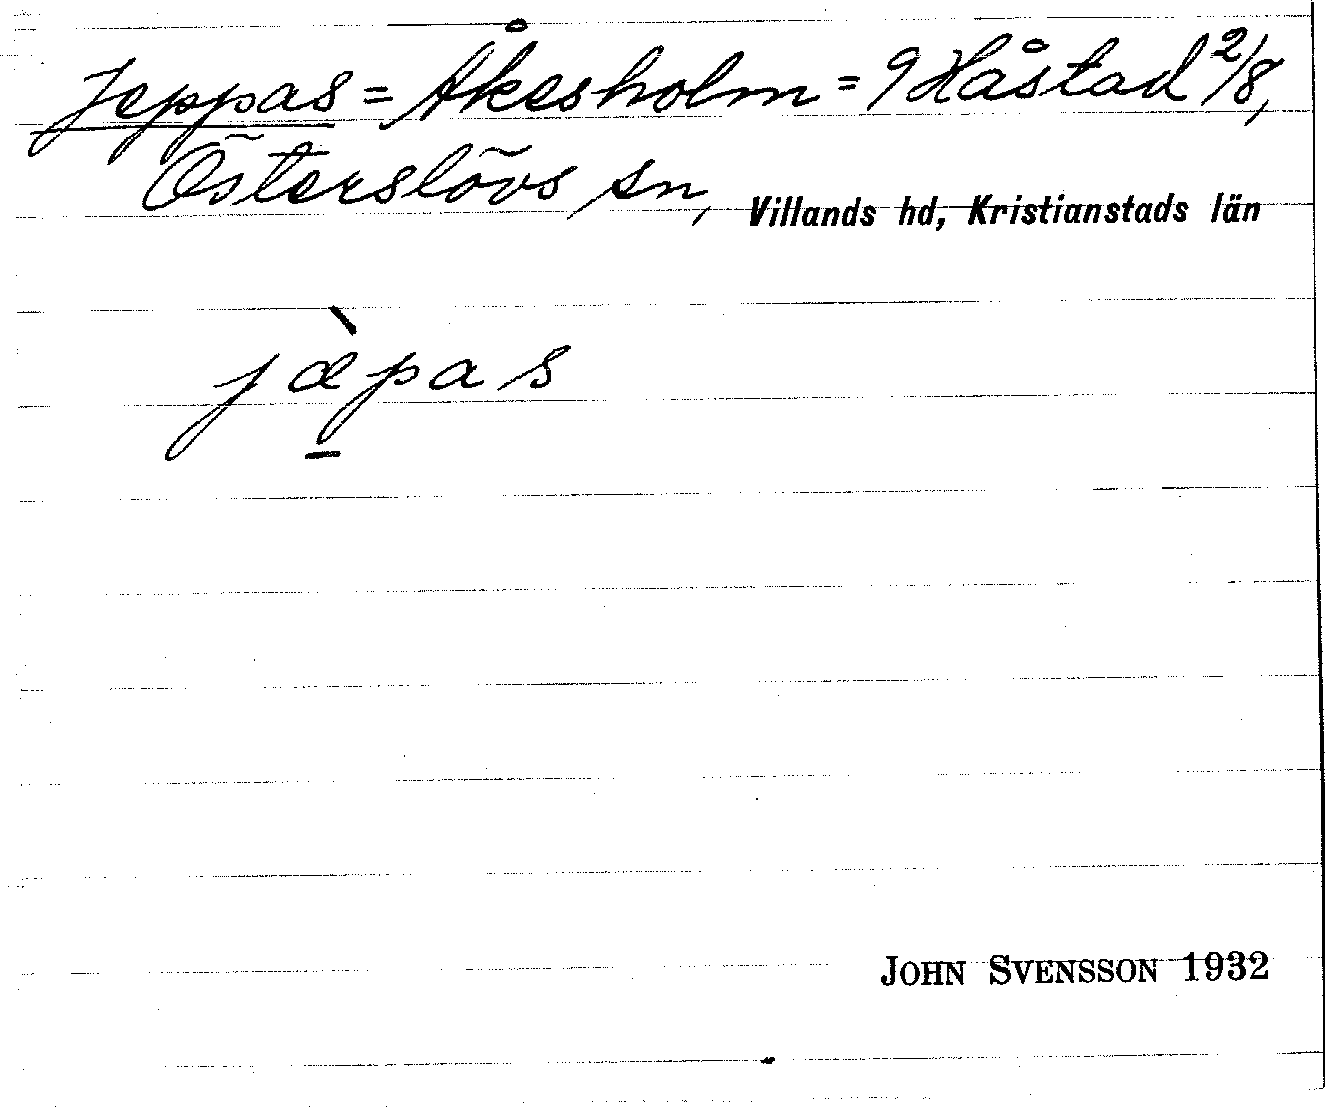 Jeppas = Åkesholm = 9 Håstad 2/8,
Österslövs sn, Villands hd, Kristianstads län
jæ̀p̠as
JOHN SVENSSON 1932